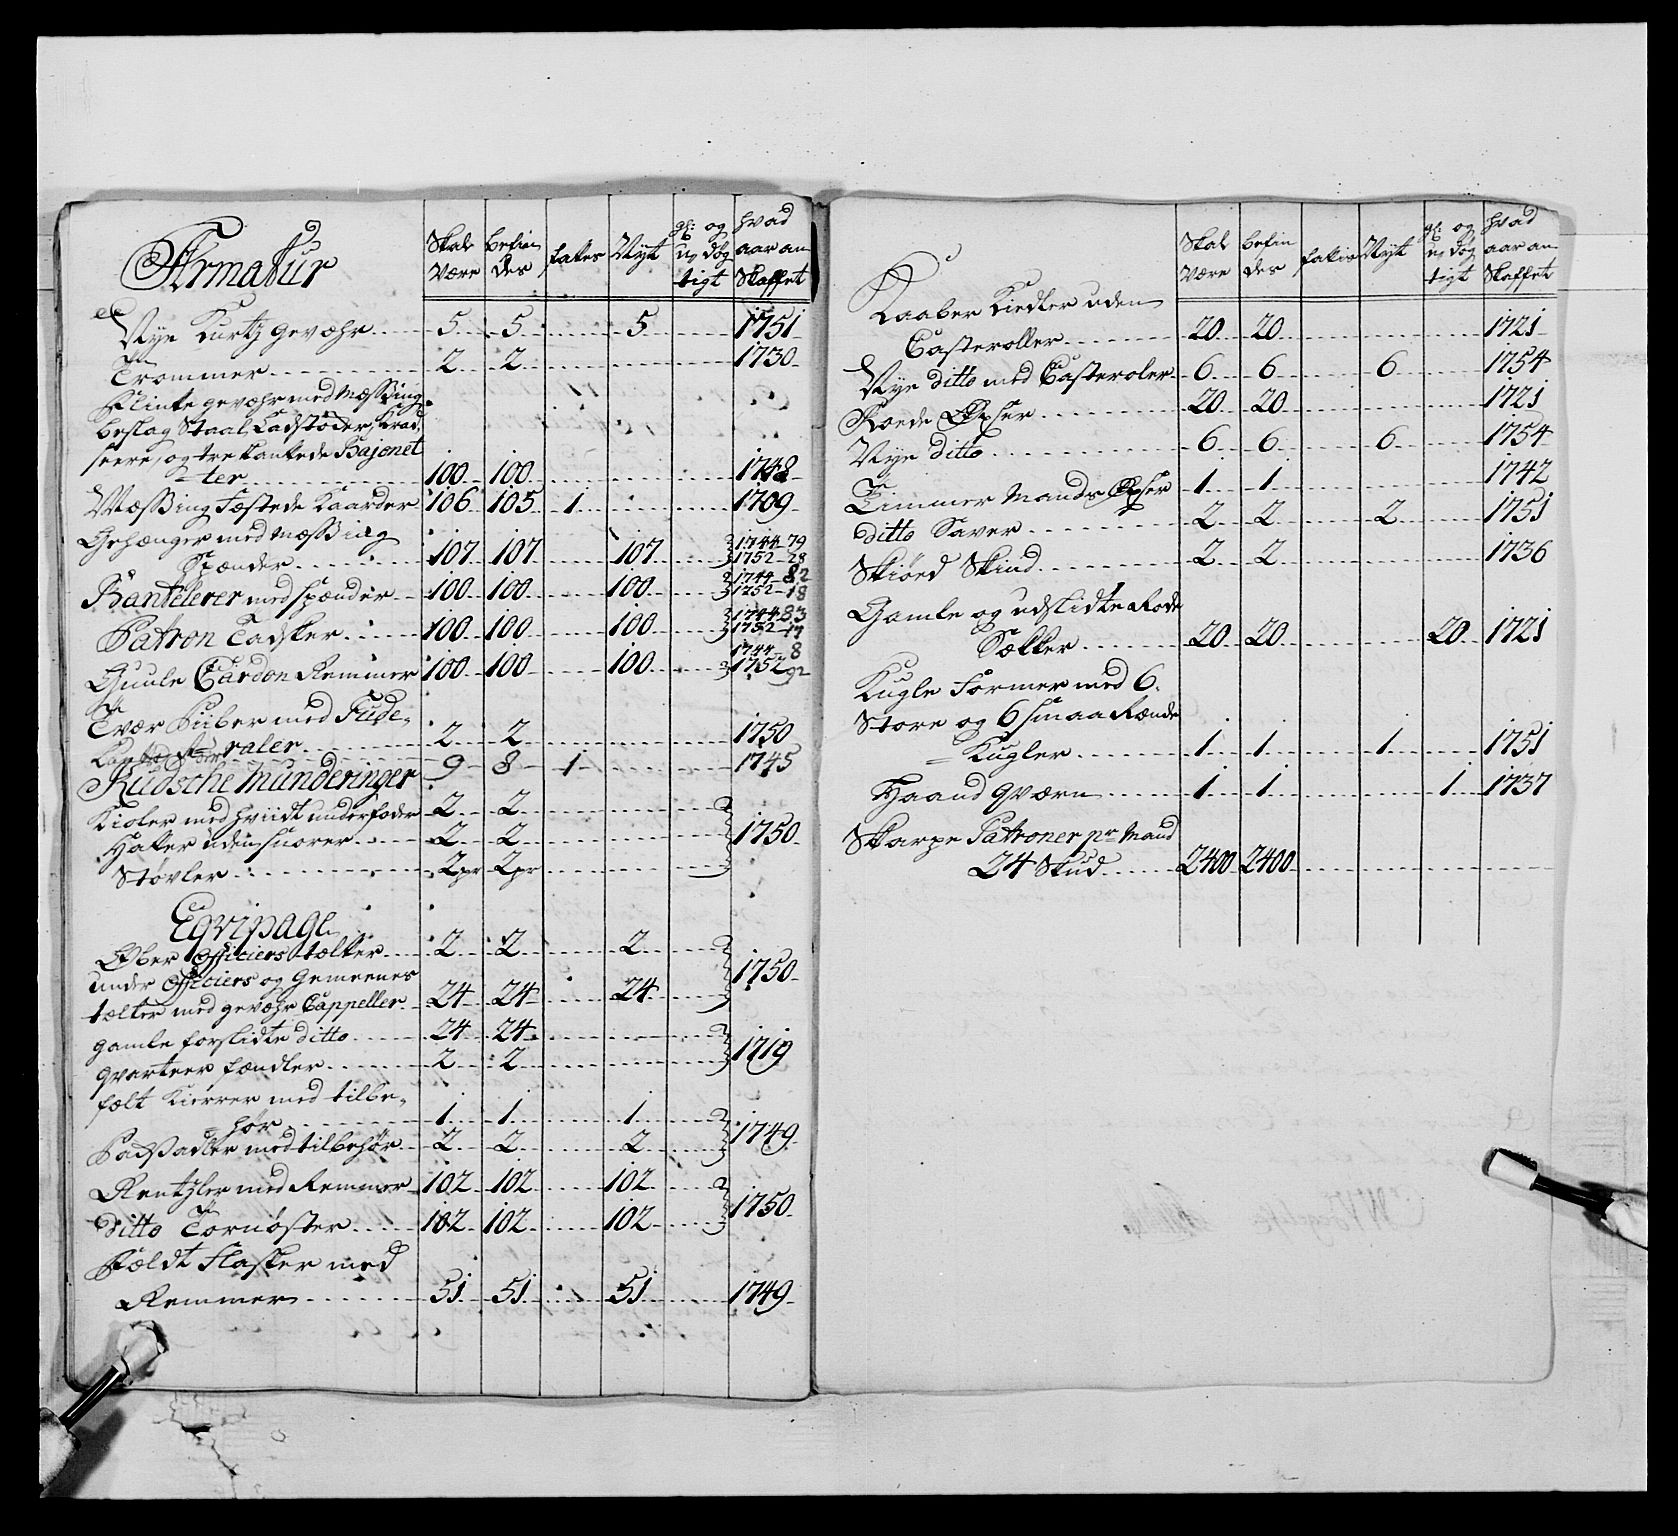 Armatur
Skal være | befindes | fattes | Nyt | gl: og udögtigt | hvad aar anskaffet
Nye Kurtz gevæhr 5 5 5 1751
Trommer 2 2 1730
Flinte gevæhr med Mæssing
beslag Staal Ladstöcker, Krad,
seere, og trekantede Bajonet
=ter 100 100 1748
Mæssing Fæstede Kaarder 106 105 1 1709
Gehænger med Mæssing
Spænder 107 107 107 1744 79 1752 28
Bantelerer med spænder 100 100 100 1744 82 1752 18
Patron Tadsker 100 100 100 1744 83 1752 17
Guule Cardon Remmer 100 100 100 1744 8 1752 92
Tvær Piiber med Fude,
=raler 2 2 1750
9 8 1 1745
Kudsche Munderinger
Kioler med hviidt underfoder 2 2
Hatter uden snorer 2 2 1750
Støvler 2pr 2pr
Eqvipage
Ober Officiers tælter 2 2 2
under Officiers og Gemeenes 1750
tælter med gevæhr Cappeller 24 24 24
gamle forslidte ditto 24 24
qvarteer fændler 2 2 1719
fælt Kierrer med tilbe,
=hør 1 1 1 1749
Padsadler med tilbehør 2 2 2
Rentzler med Remmer 102 102 102
ditto Tornøster 102 102 102 1750
Fældt Flasker med
Remmer 51 51 51 1749
Skal være | befindes | fattes | Nyt | gl: og udögtigt | hvad aar anskaffet
Kaaber Kiedler uden
Casteroller 20 20 1721
Nye ditto med Casteroler 6 6 6 1754
Roede Øxser 20 20 1721
Nye ditto 6 6 6 1754
Timmer Mands Øxser 1 1 1742
ditto Saver 2 2 2 1751
Skiøed Skind 2 2 1736
Gamle og udslidte Rode
Sækker 20 20 20 1721
Kugle Former med 6
Store og 6 smaa Rende
=Kugler 1 1 1 1751
Haand qværn 1 1 1 1737
Skarpe Patroner pr Mand
24 Skud 2400 2400